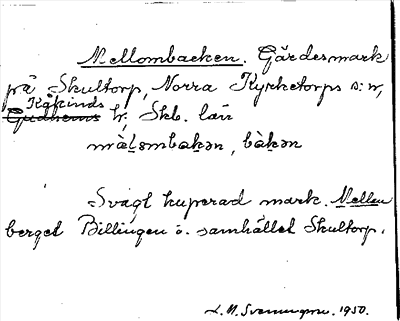 Mellombacken. Gärdesmark
på Skultorp, Norra Kyrketorps s:n,
Kåkinds
Gudhems h; Skb. län
mæ̀ḷəmbakən, bàkən
Svagt kuperad mark. Mellan
berget Billingen o. samhället Skultorp.
1950.